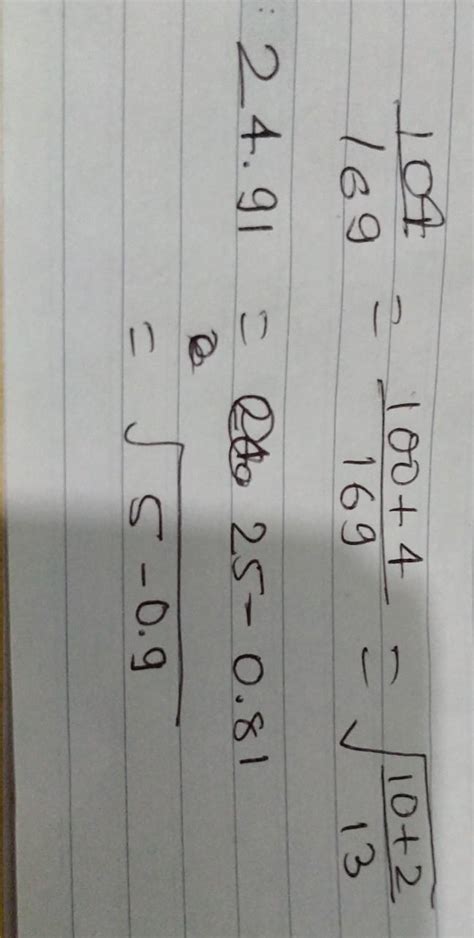 104/169 = 100+4/169 = √10+2/13
: 24.91 = 25-0.81
= √5-0.9